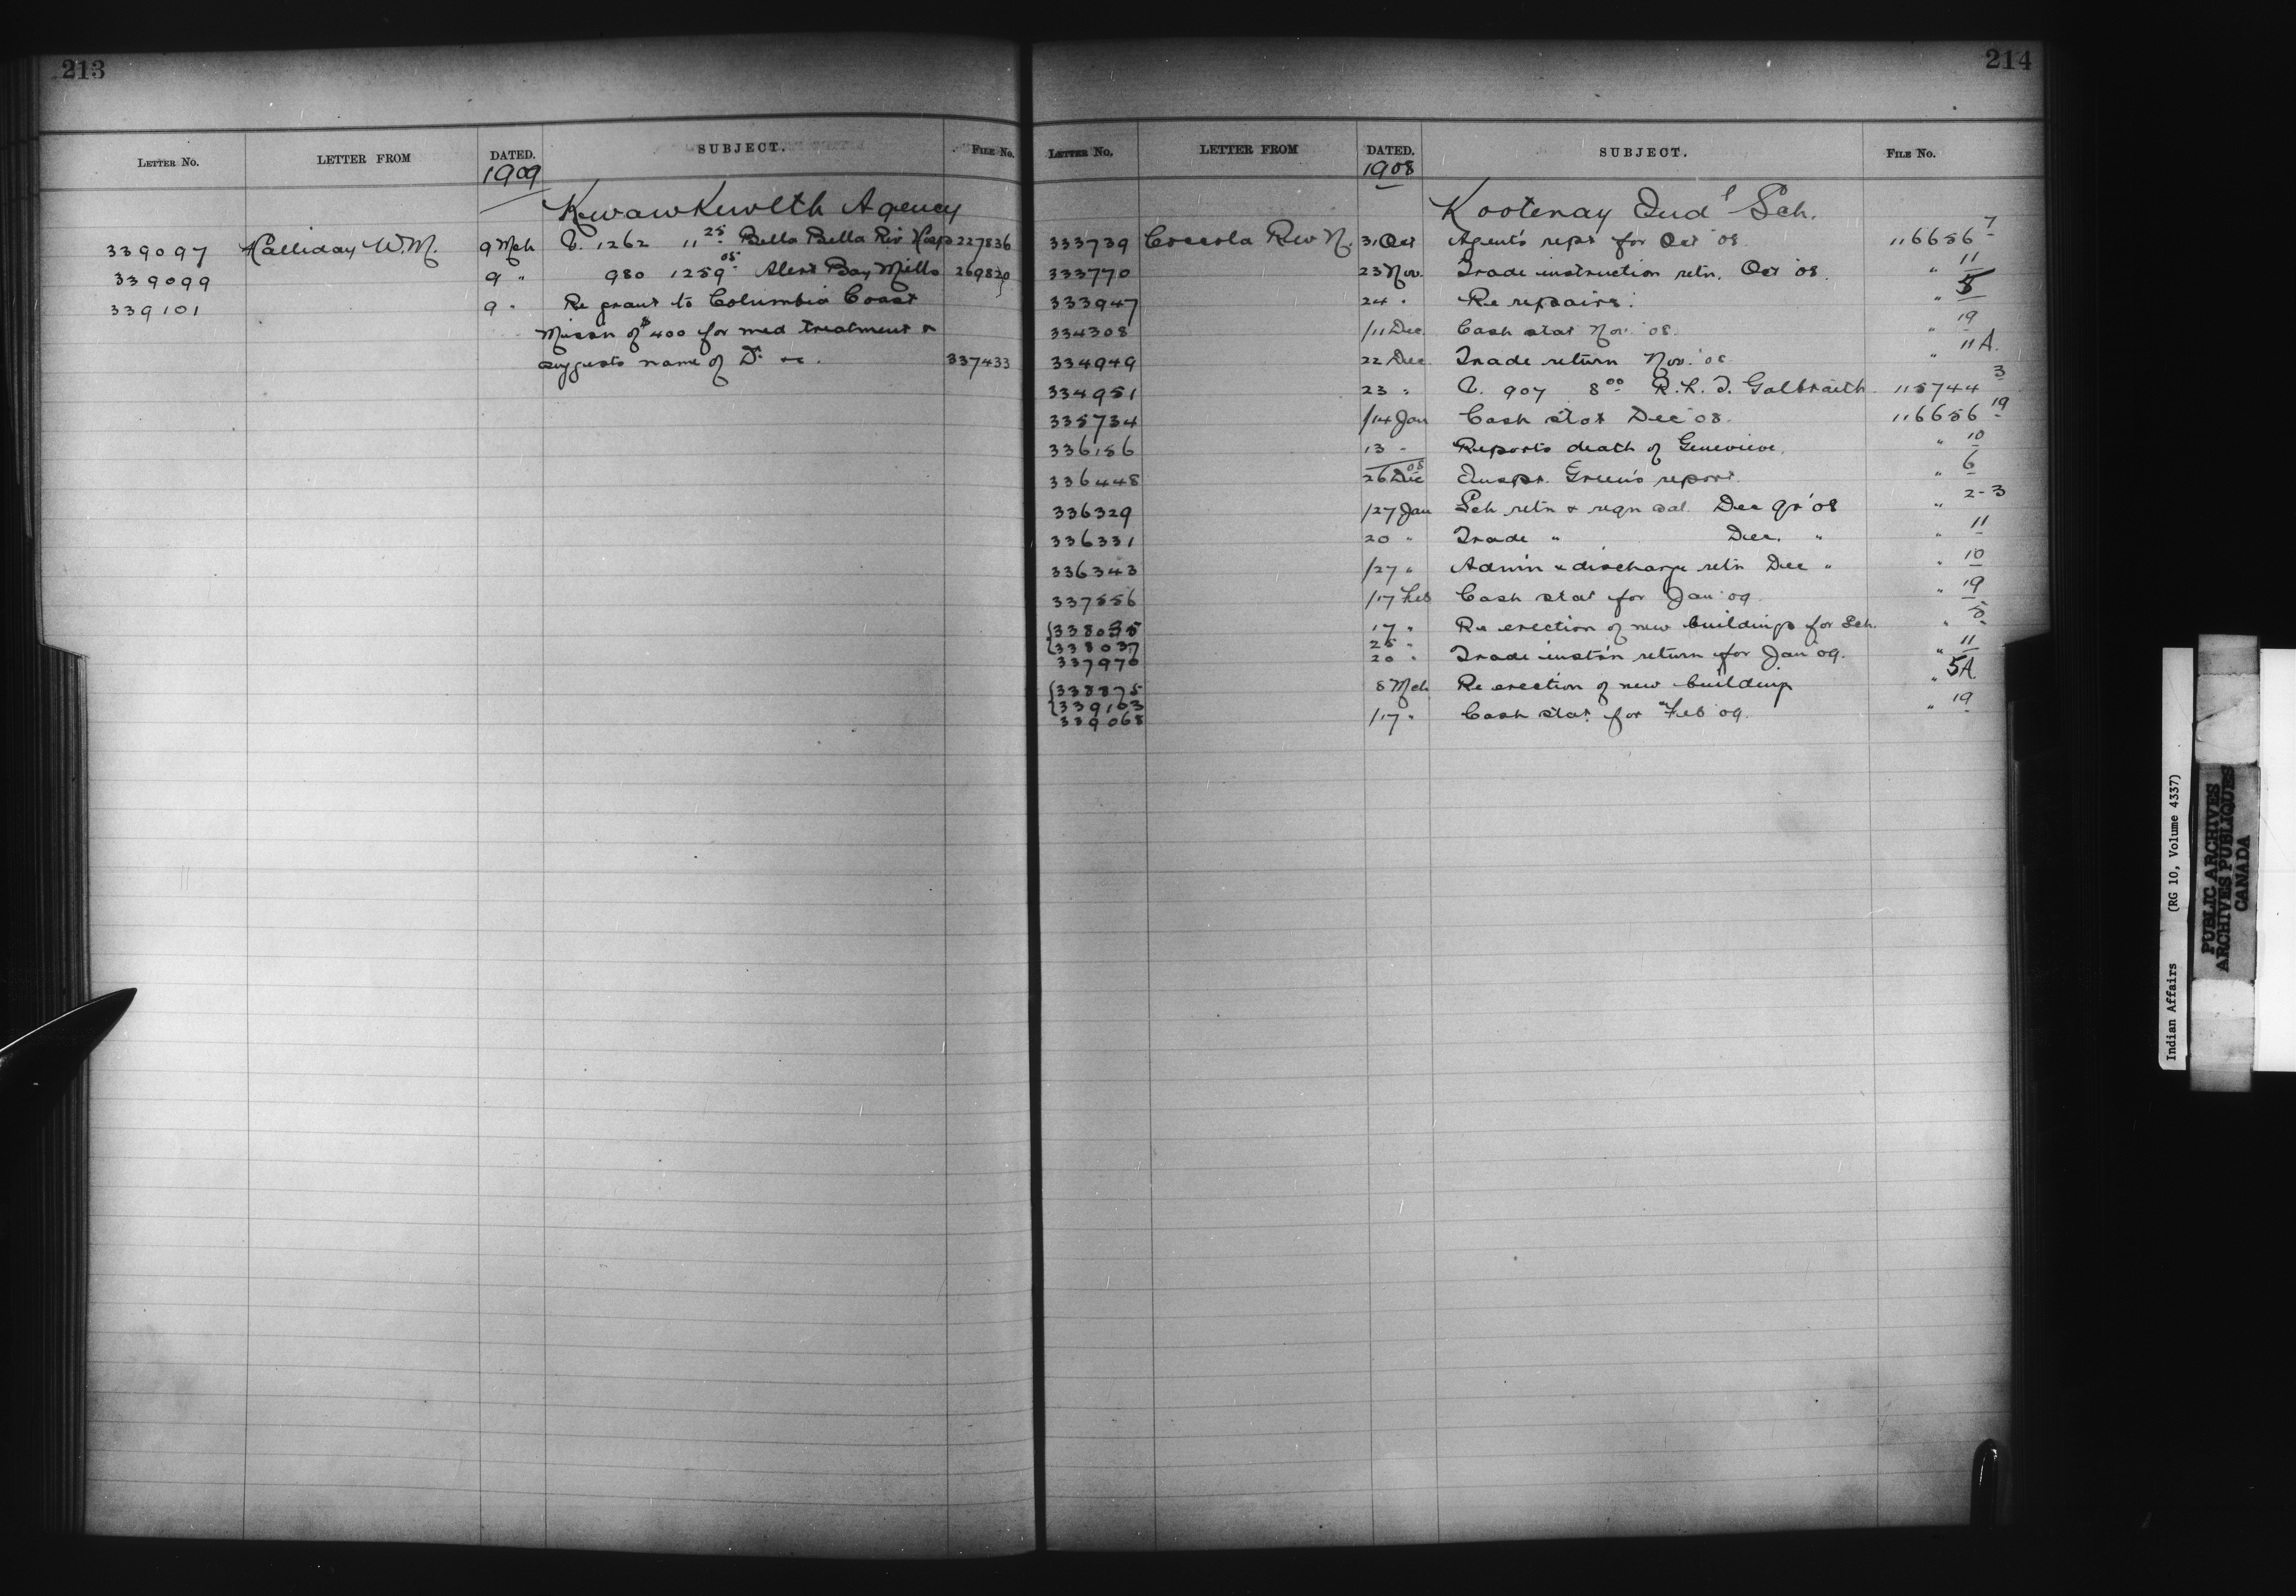 213
LETTER NO. LETTER FROM DATED. SUBJECT. FILE NO.
1909
Kwawkewlth Agency
339097 Halliday W.M. 9 Mch C. 1262 11 25 Bella Bella Riv Hosp 227836
339099 9 " 980 1259 05 Alert Bay Mills 269820
339101 9 " Re grant to Columbia Coast
Missn of $400 for med treatment &
suggests name of Dr. &c. 337433
214
LETTER NO. LETTER FROM DATED. SUBJECT. FILE NO.
1908
Kootenay Indl Sch.
333739 Coccola Rev N. 31 Oct Agent's rept for Oct '08 116656 7
333770 23 Nov. Trade instruction retn. Oct '08. " 11
333947 24 " Re repairs. " 5
334308 /11 Dec. Cash stat Nov. '08. " 19
334949 22 Dec. Trade return Nov. '08 " 11A.
334951 23 " C. 907 8 00 R.L.T. Galbraith 115744 3
335734 /14 Jan Cash stat Dec '08. 116656 19
336156 13 " Reports death of Genevieve. " 10
336448 26 Dec 08 Inspr. Green's report. " 6
336329 /27 Jan Sch retn & reqn sal. Dec qr '08 " 2-3
336331 20 " Trade " Dec. " " 11
336343 /27 " Admn & discharge retn Dec " " 10
337556 /17 Feb Cash stat for Jan '09 " 19
338035 17 " Re erection of new buildings for Sch. " 5
338037 25 "
337970 20 " Trade inst'n return for Jan 09. " 11
338875 8 Mch Re erection of new building " 5A
339163
339068 /17 " Cash stat for Feb '09. " 19
Indian Affairs (RG 10, Volume 4337)
PUBLIC ARCHIVES
ARCHIVES PUBLIQUES
CANADA